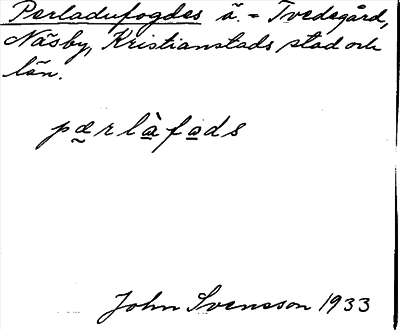 Perladufogdes ä. = Tvedegård,
Näsby, Kristianstads stad och
län.
pærlàfads
John Svensson 1933